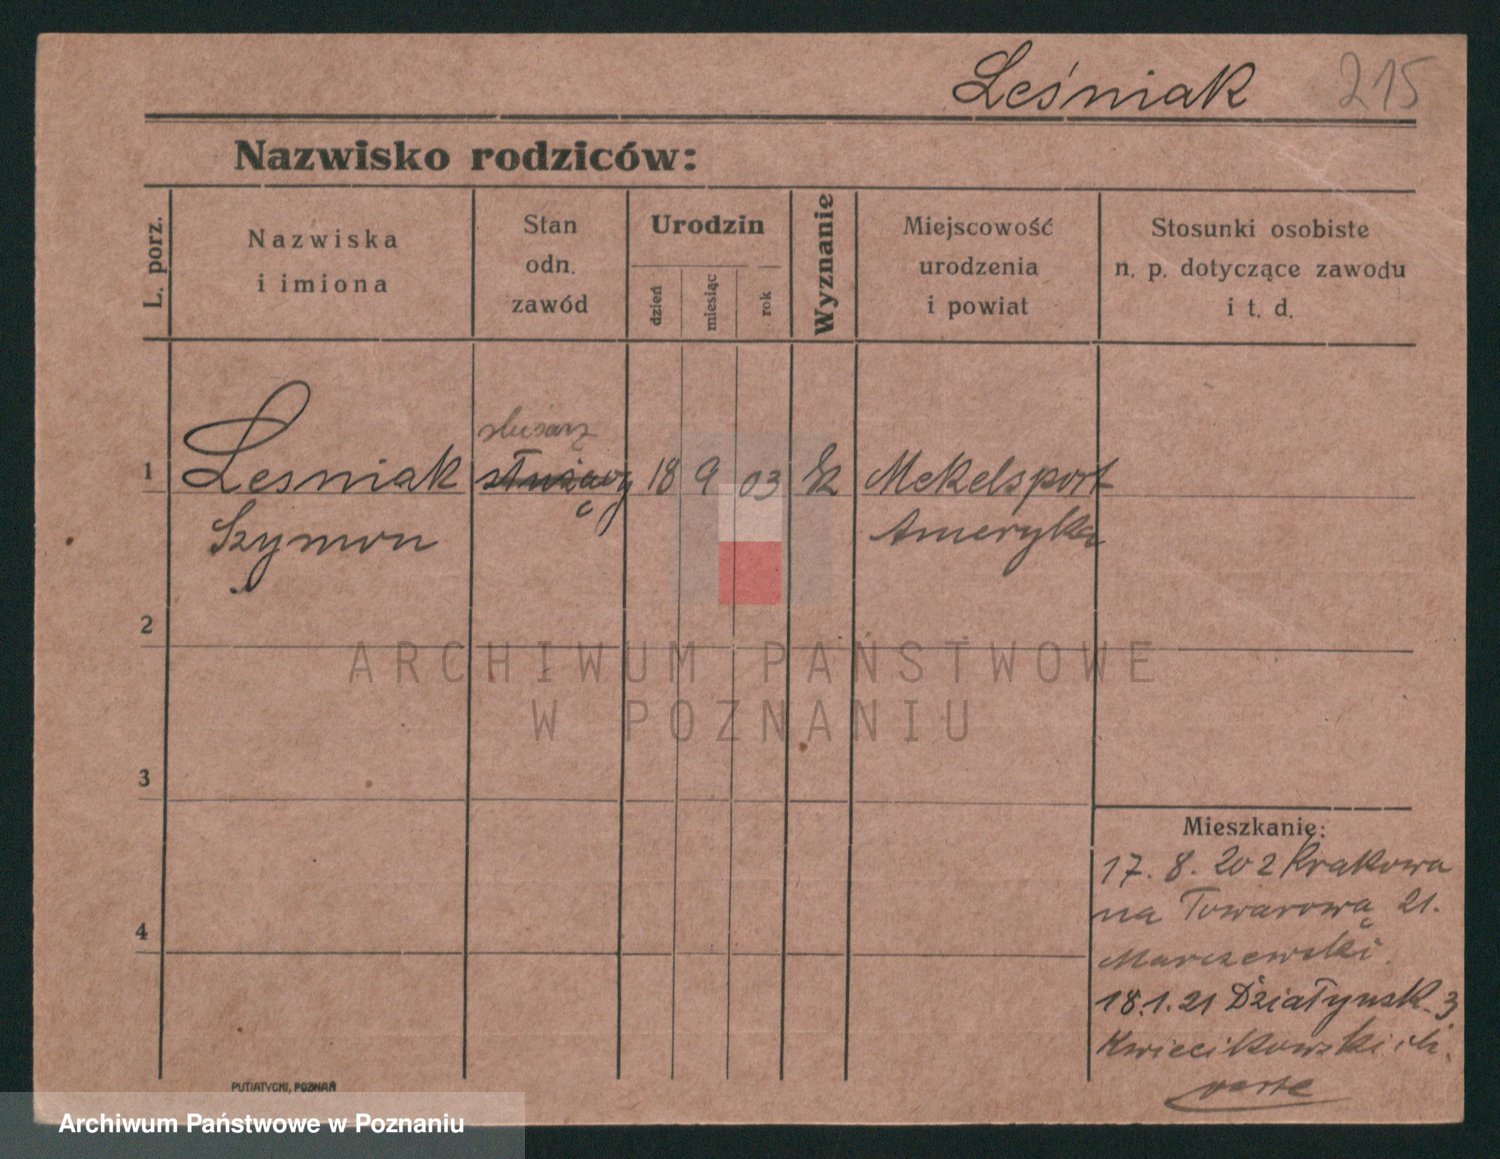 Leśniak 215
Nazwisko rodziców:
L. porz.
Nazwiska
i imiona
Stan
odn.
zawód
Urodzin
dzień
miesiąc
rok
Wyznanie
Miejscowość
urodzenia
i powiat
Stosunki osobiste
n. p. dotyczące zawodu
i t. d.
ślusarz
1 Lesniak służący 18 9 03 Mekelsport
Szymon Ameryka
2
3
4
ARCHIWUM PAŃSTWOWE
W POZNANIU
Mieszkanie:
17. 8. 20 z Krakowa
na Towarową 21.
Marczewski.
18.1.21 Działyńsk. 3
verte
PUTIATYCKI, POZNAŃ
Archiwum Państwowe w Poznaniu